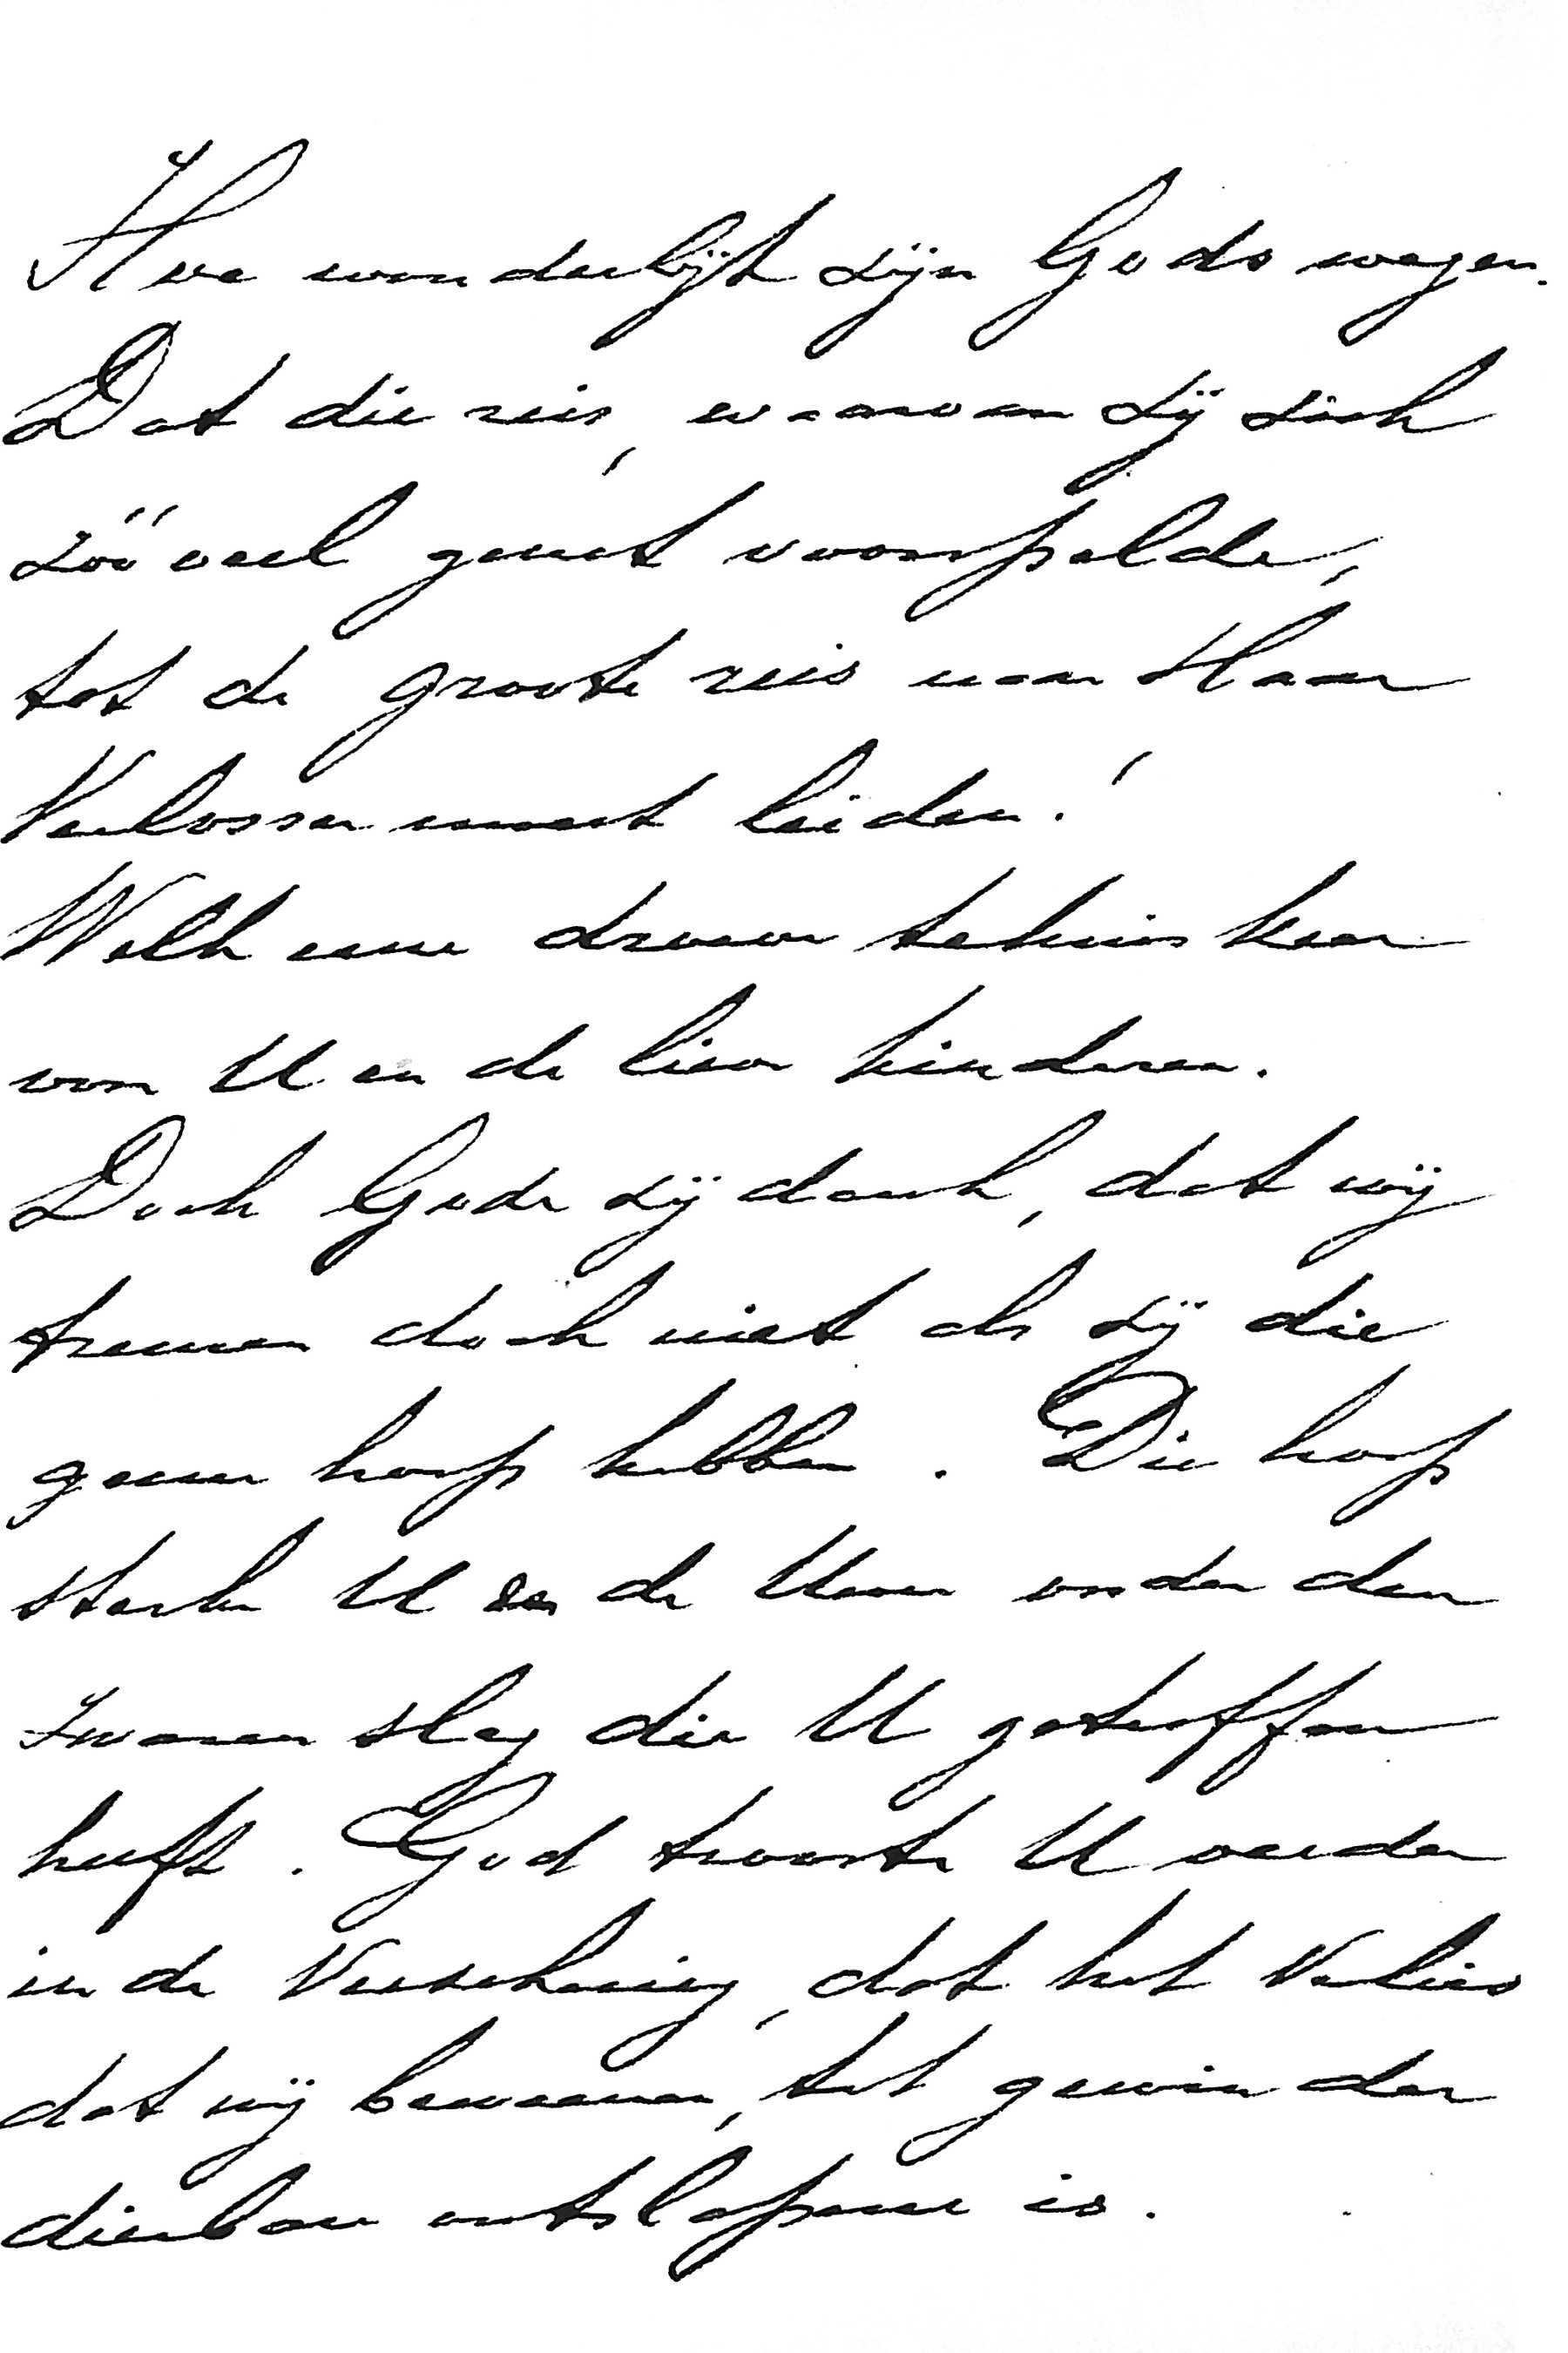 Hoe wonderlijk zijn Gods wegen.
Dat die reis, waarvan zij zich
zóó veel genot voorspelde,
tot de groote reis naar Haar
Verlosser moest leiden!
Welk eene droeve tehuiskeer
van U en de lieve kinderen.
Doch Gode zij dank, dat wij
treuren doch niet als zij die
geene hoop hebben. Die hoop
sterke U en de Uwen onder den
zwaren slag die U getroffen
heeft. God trooste U verder
in de Verzekering, dat het Verlies
dat wij beweenen, tot gewin der
dierbare ontslapene is.